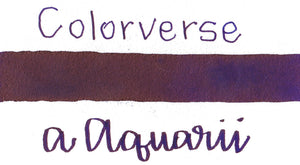 Colorverse
a Aquarii